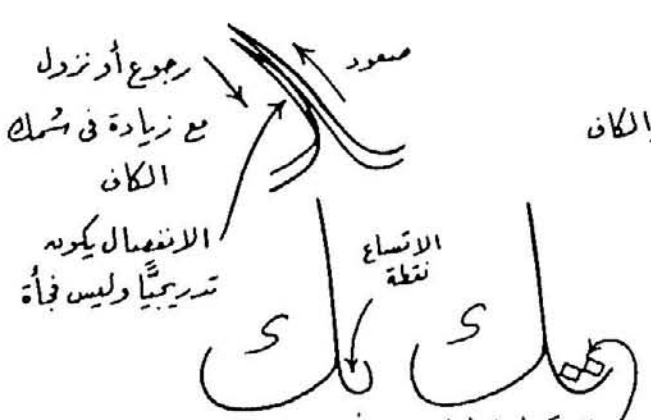 صعود
رجوع أو نزول
مع زيادة فى سُمك
الكاف
الكاف
الانفصال يكون
تدريجيًّا وليس فجأة
الاتساع
نقطة